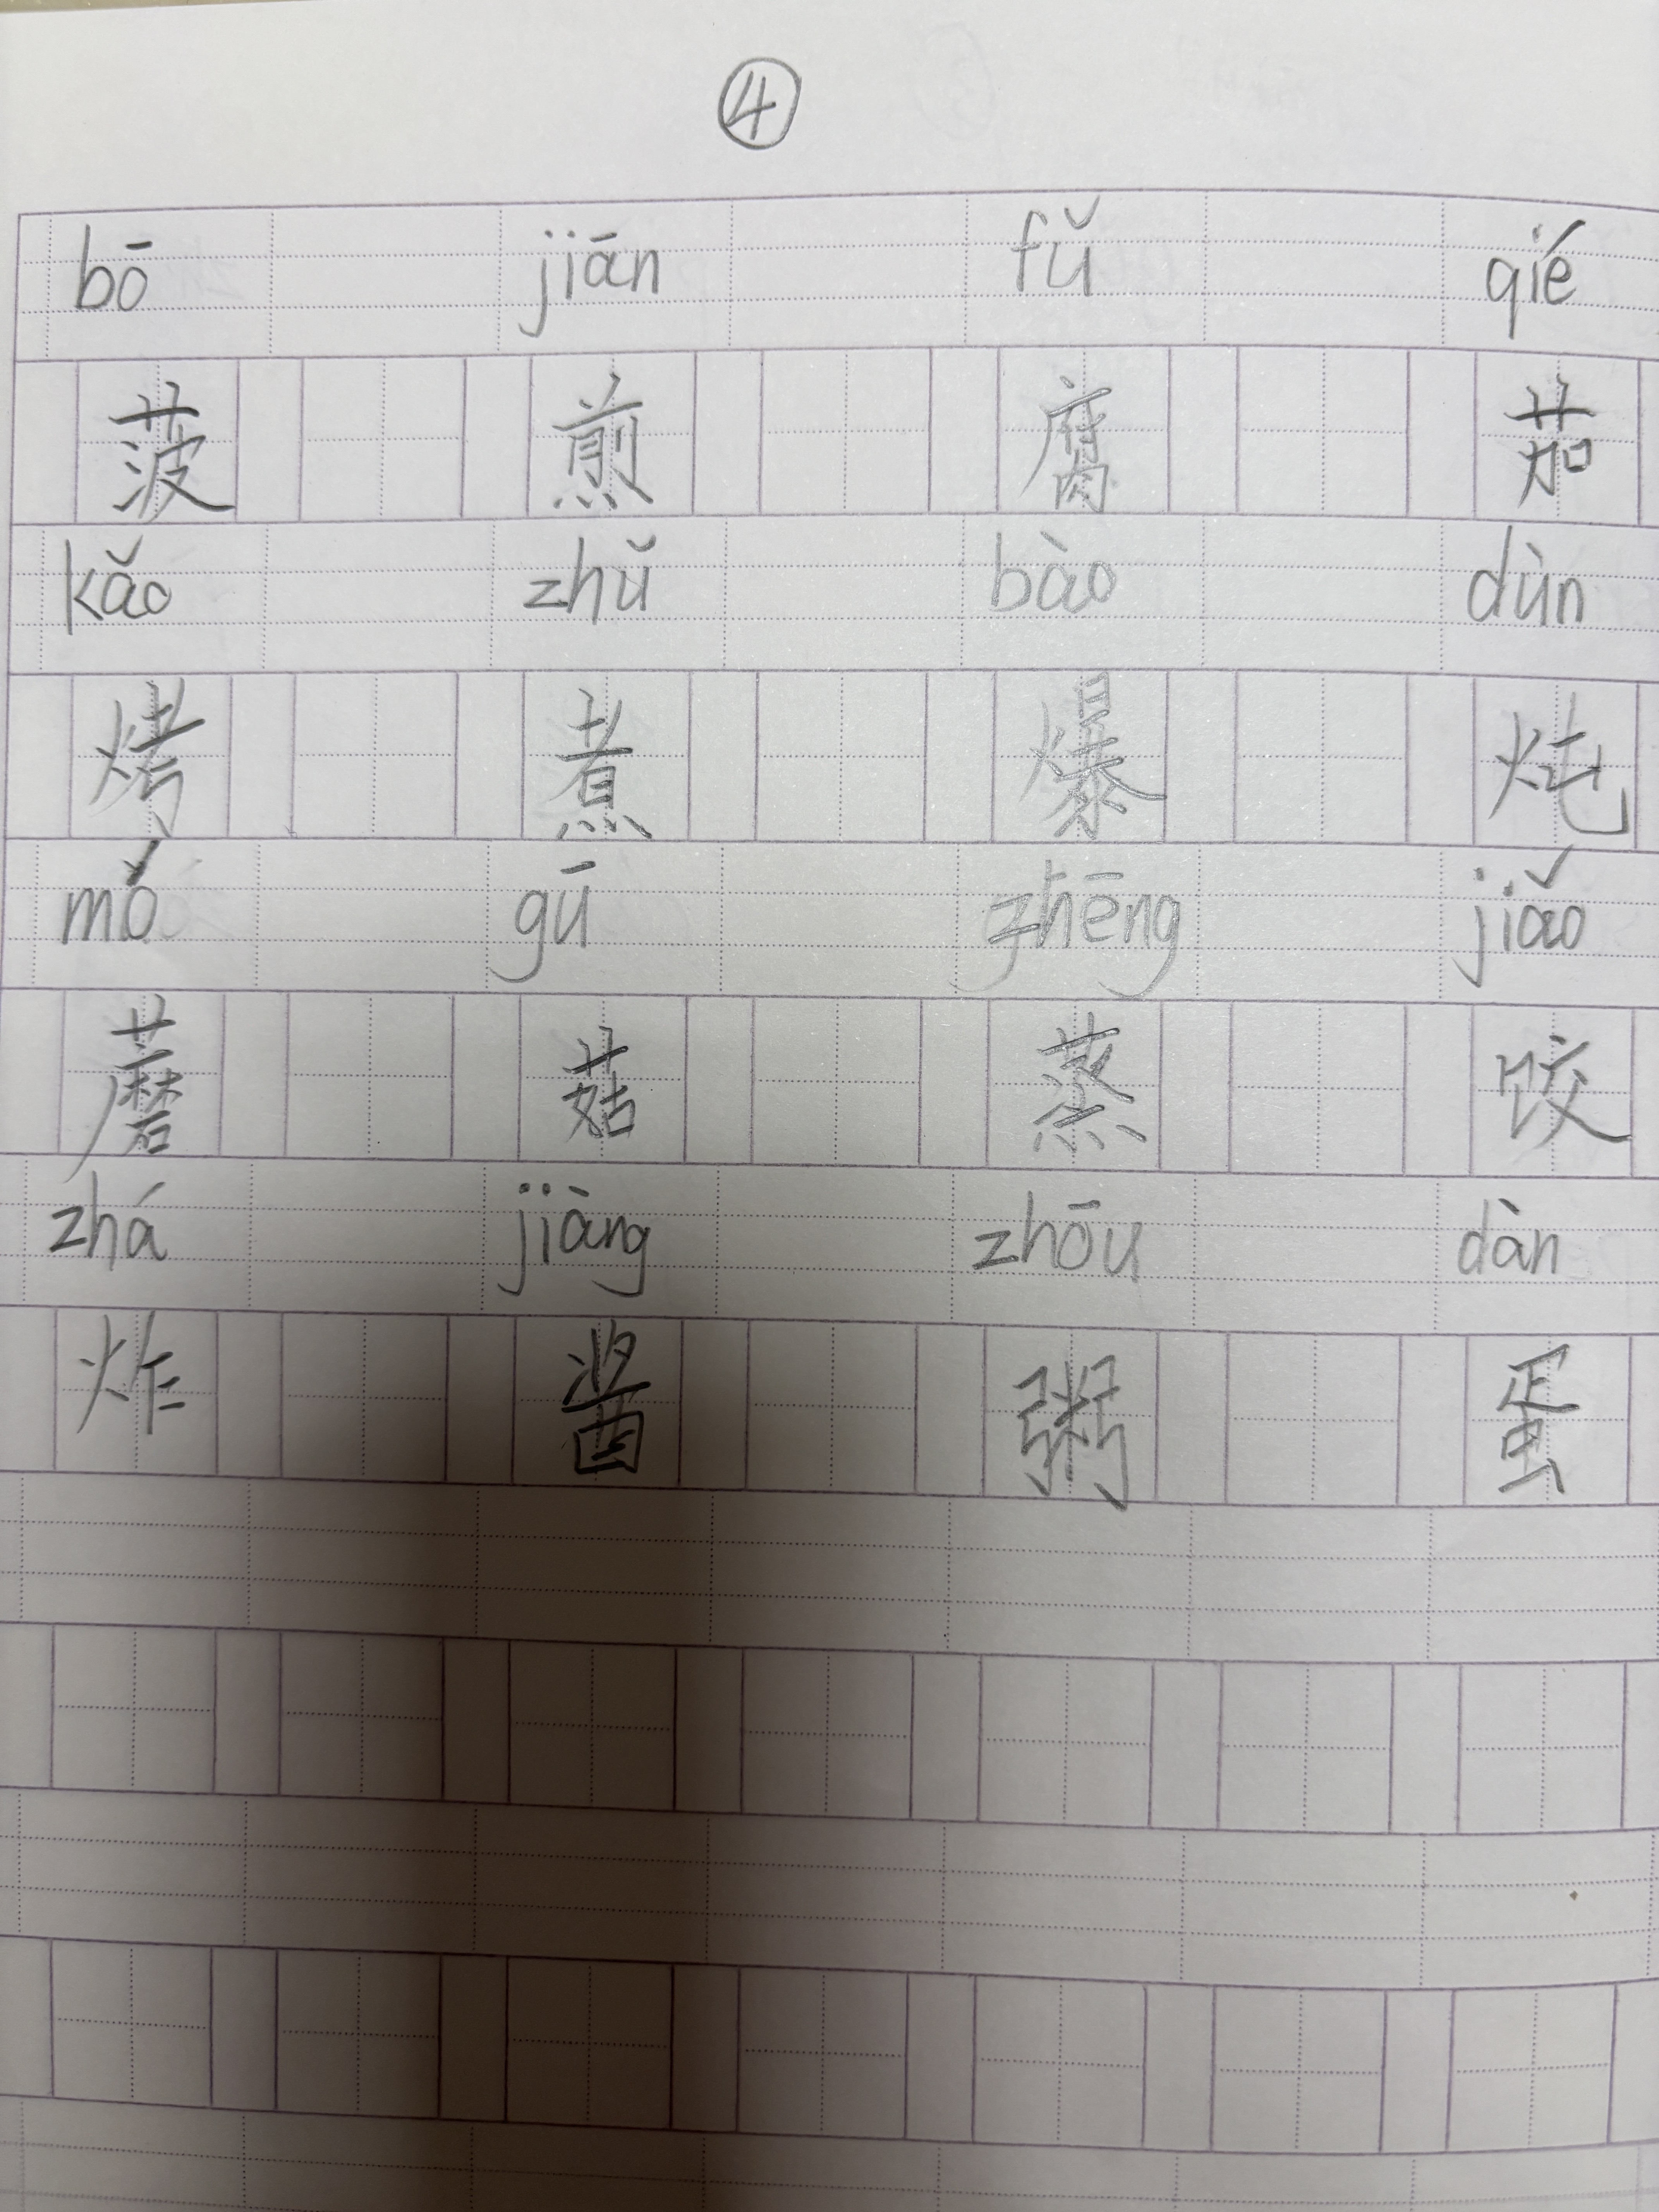 ④
bō jiān fǔ qié
菠 煎 腐 茄
kǎo zhǔ bào dùn
烤 煮 爆 炖
mó gū zhēng jiǎo
蘑 菇 蒸 饺
zhá jiàng zhōu dàn
炸 酱 粥 蛋